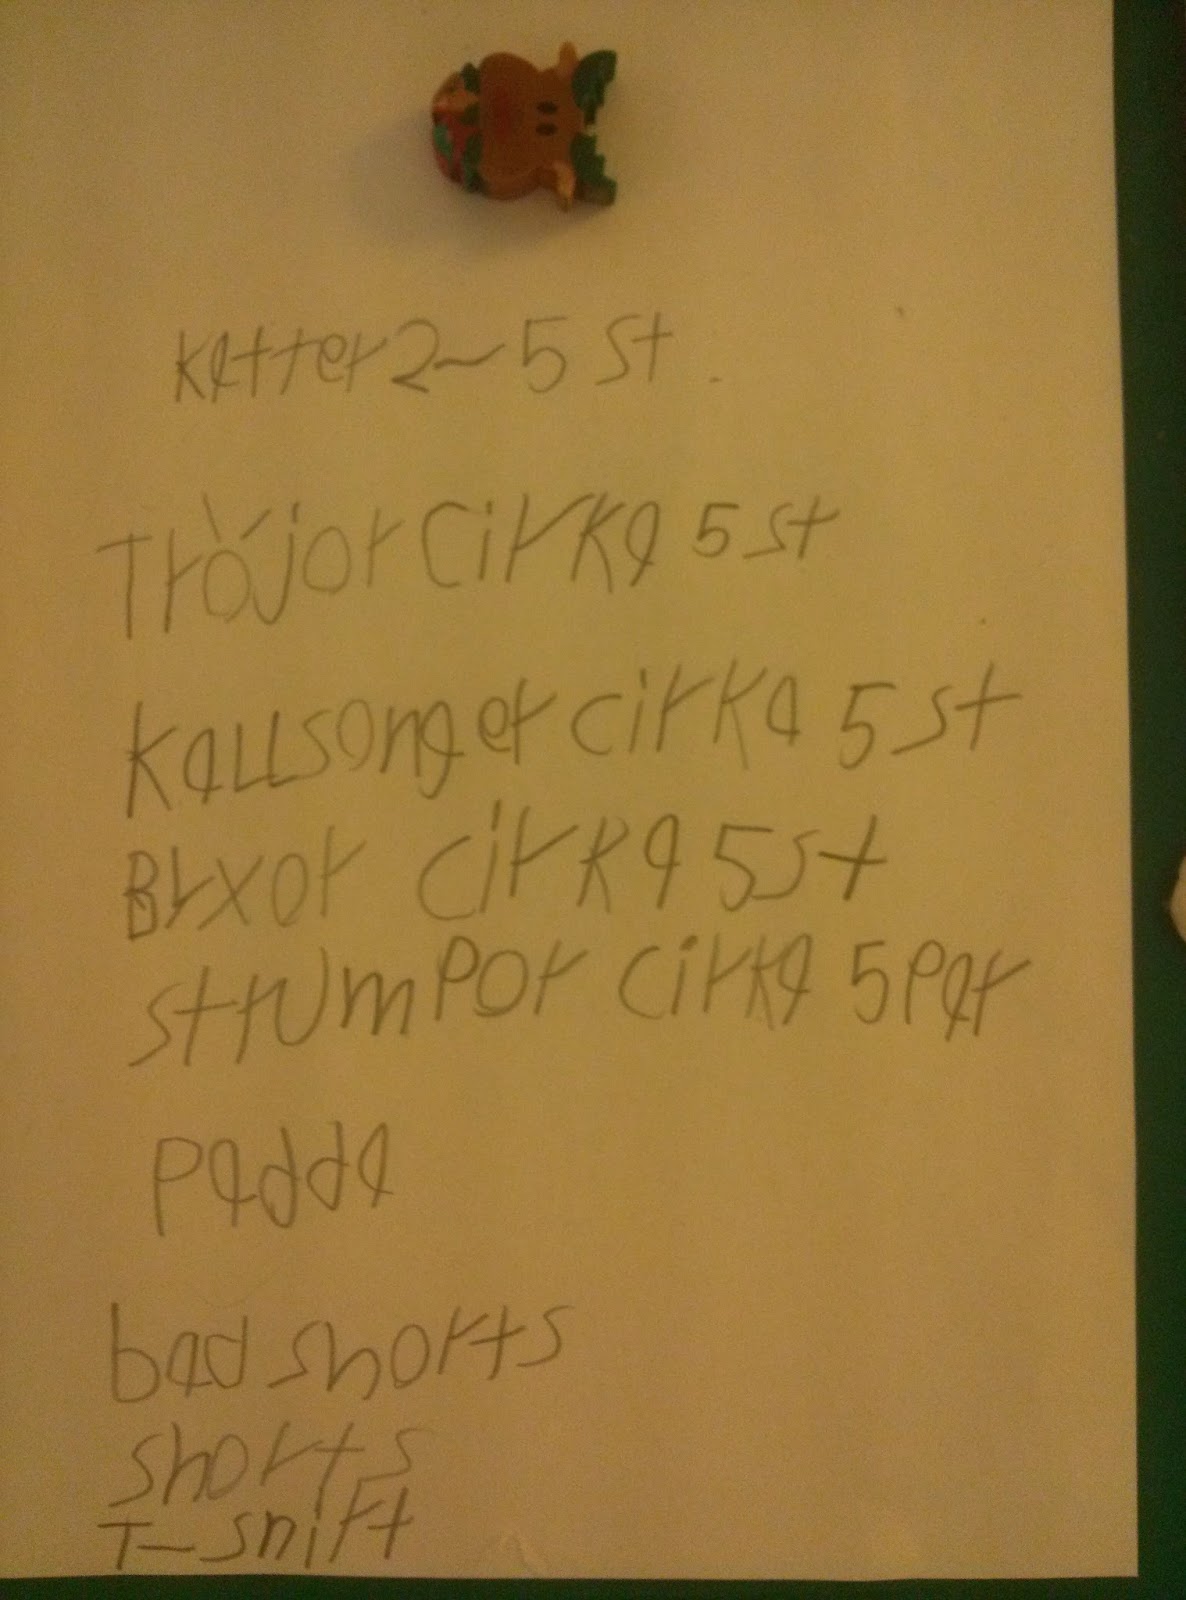 Katter 2-5 st.
Tröjor cirka 5 st
Kallsonger cirka 5 st
Brxor cirka 5 st
strumpor cirka 5 par
Padda
bad shorts
shorts
T-shirt